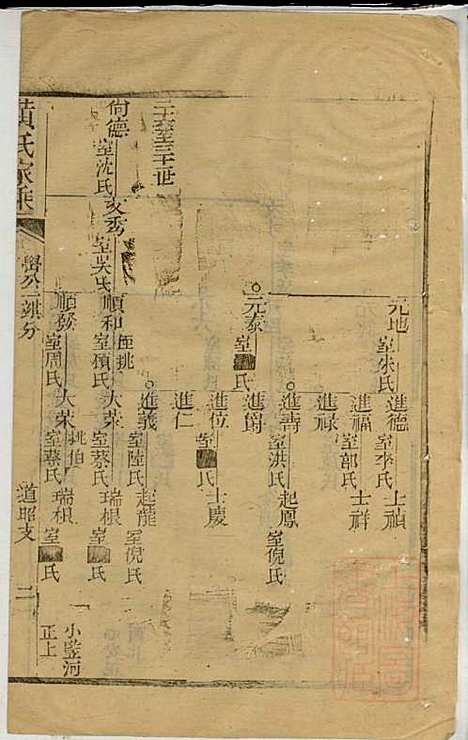 元地 室朱氏
進德 室李氏 士禎
進福 室部氏 士祥
進祿
進壽 室洪氏 起鳳 室倪氏
元泰 室氏
進爵
進位 室氏 士慶
進仁
進義 室陸氏 起龍 室倪氏
尙德 室沈氏 友秀 室吳氏 順和 室項氏 大榮 室蔡氏 瑞根 室氏
兼挑
順發 室周氏 大榮 室蔡氏 瑞根 室氏
挑伯
小竪河
正上
黃氏家乘
道昭支
二